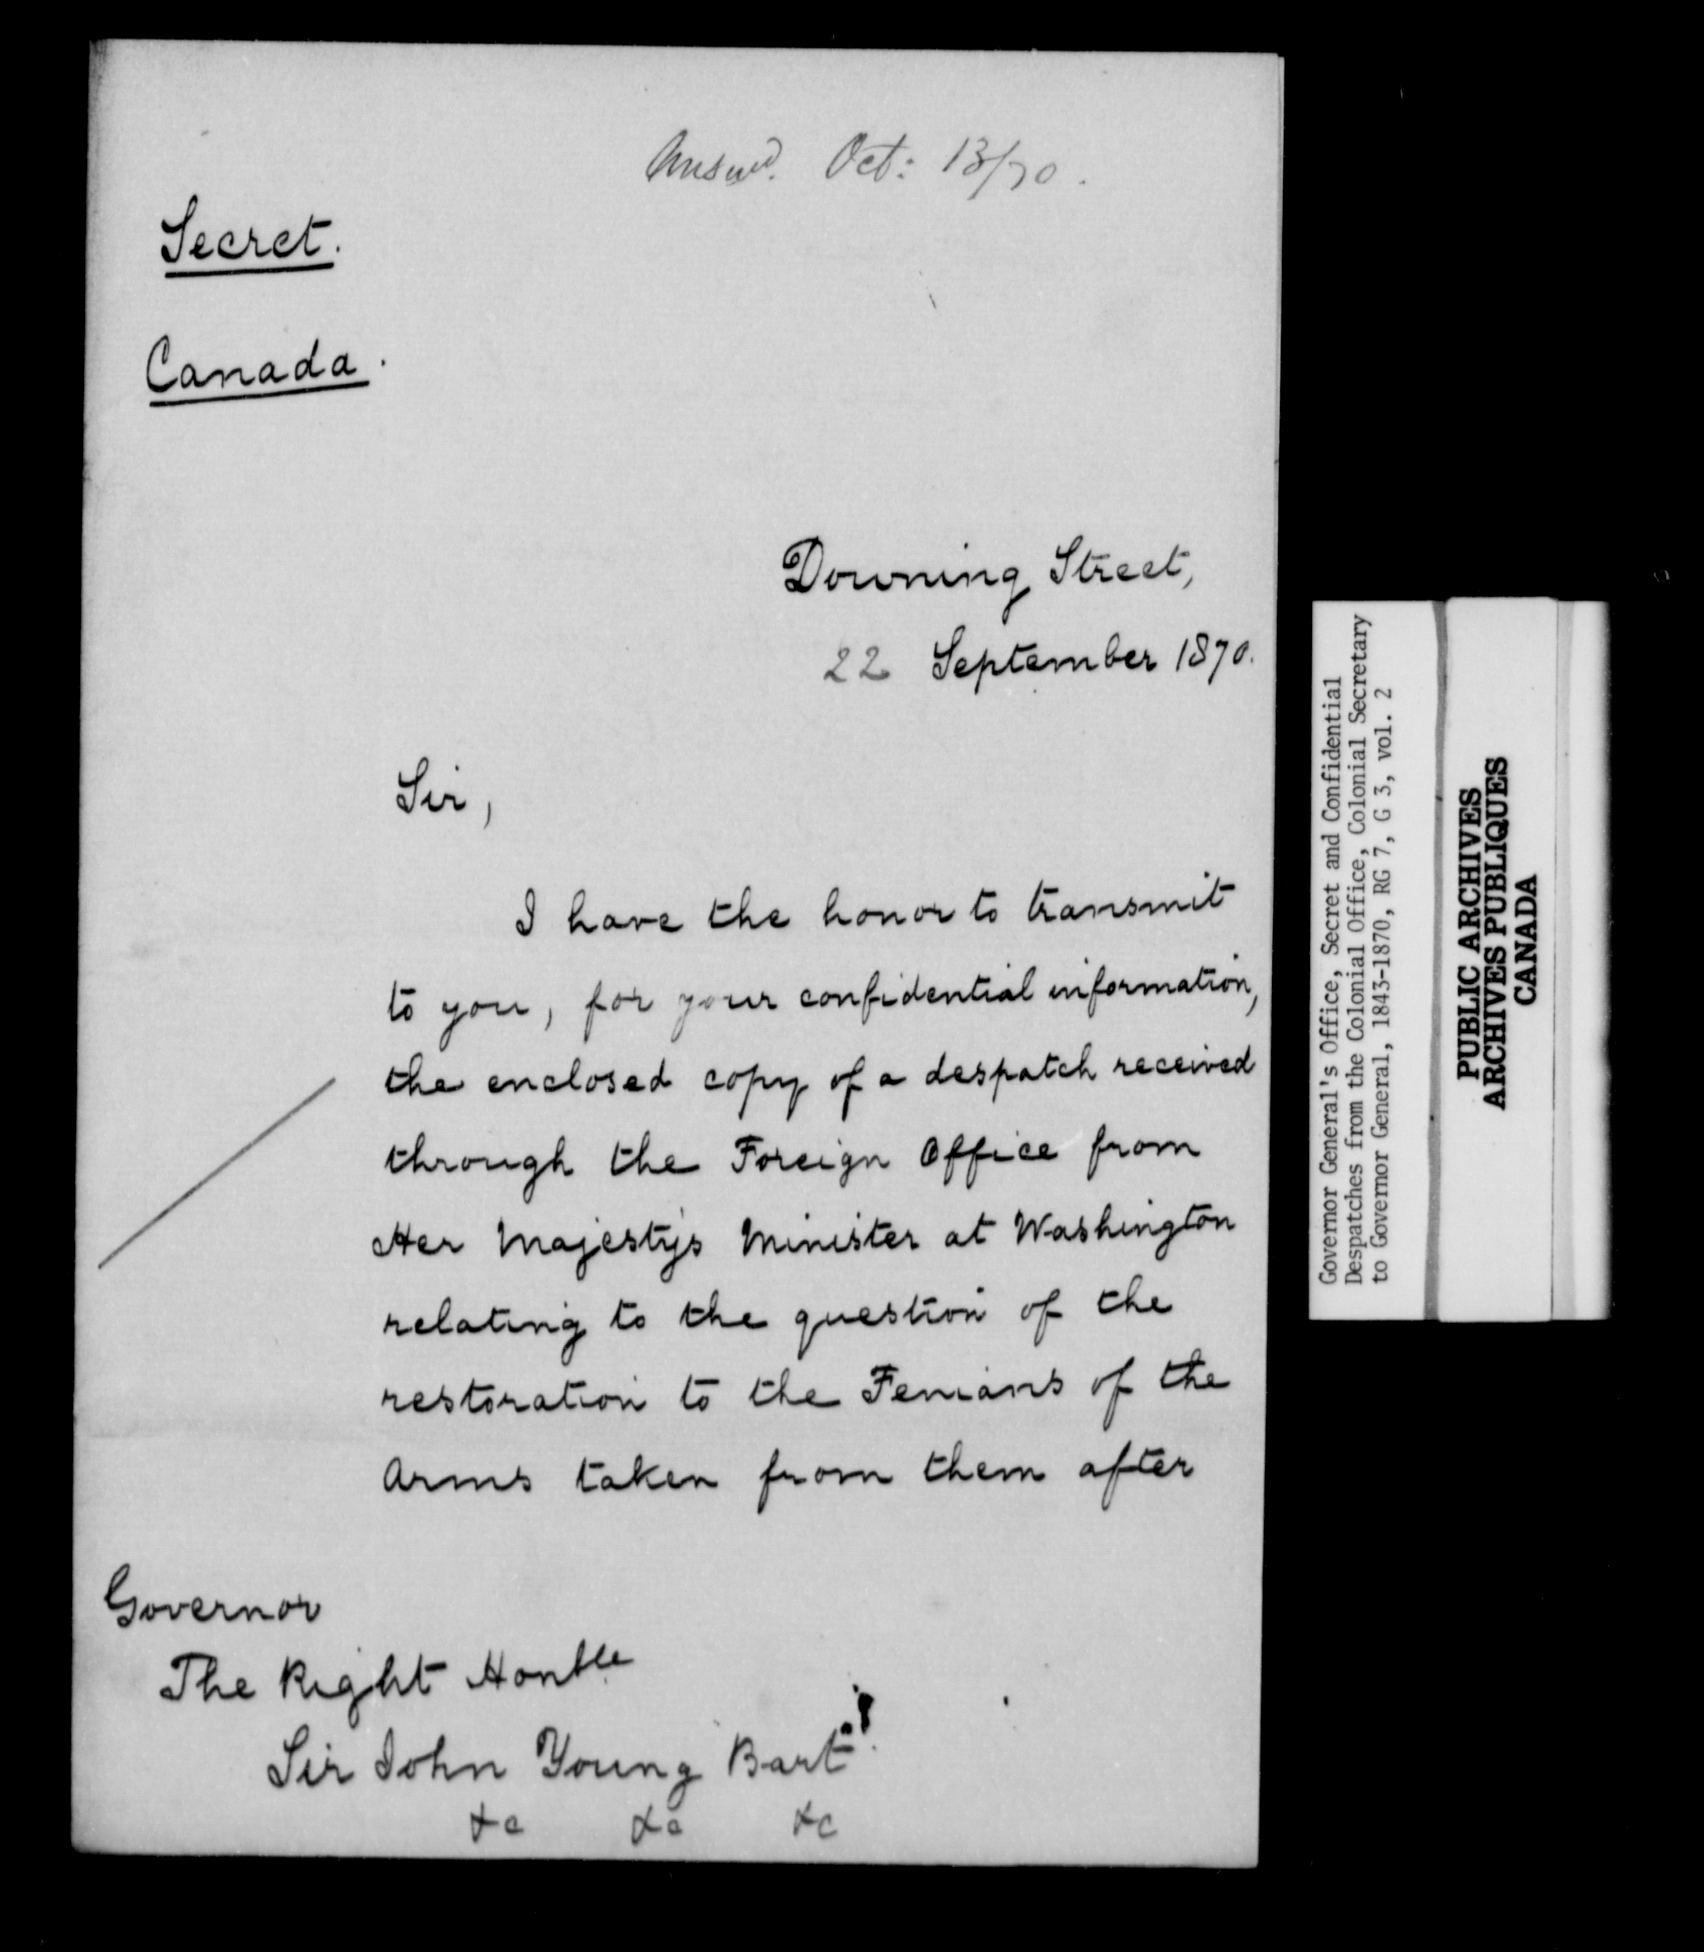 Answd. Oct: 13/70.
Secret.
Canada.
Downing Street,
22 September 1870.
Sir,
I have the honor to transmit
to you, for your confidential information,
the enclosed copy of a despatch received
through the Foreign Office from
Her Majesty's Minister at Washington
relating to the question of the
restoration to the Fenians of the
Arms taken from them after
Governor
The Right Honble
Sir John Young Bart.
&c &c &c
Governor General's Office, Secret and Confidential
Despatches from the Colonial Office, Colonial Secretary
to Governor General, 1843-1870, RG 7, G 3, vol. 2
PUBLIC ARCHIVES
ARCHIVES PUBLIQUES
CANADA